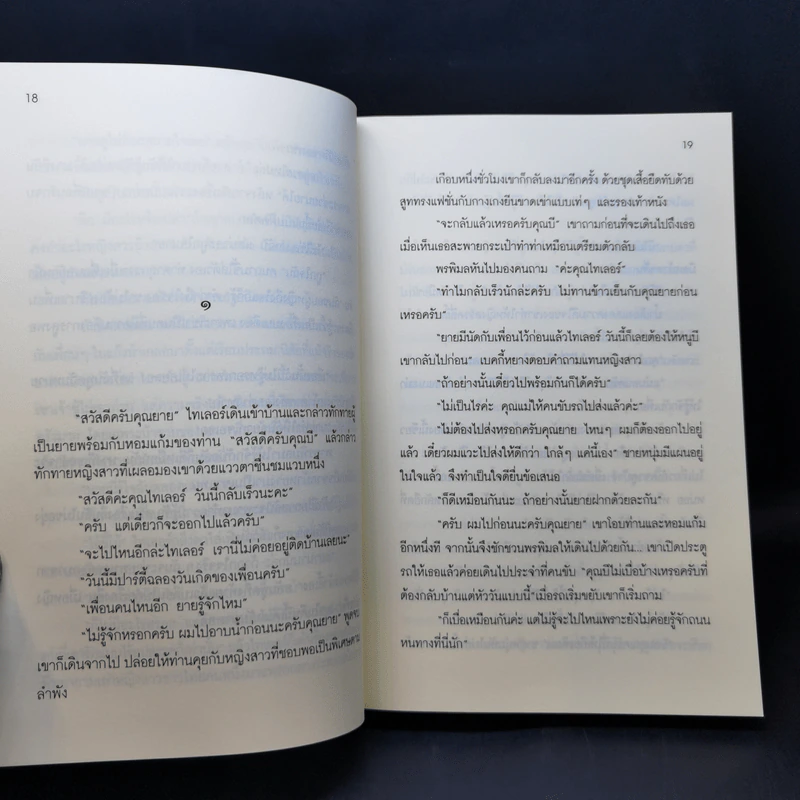 18
๑
"สวัสดีครับคุณยาย" ไทเลอร์เดินเข้าบ้านและกล่าวทักทายผู้
เป็นยายพร้อมกับหอมแก้มของท่าน "สวัสดีครับคุณบี" แล้วกล่าว
ทักทายหญิงสาวที่เผลอมองเขาด้วยแววตาชื่นชมแวบหนึ่ง
"สวัสดีค่ะคุณไทเลอร์ วันนี้กลับเร็วนะคะ"
"ครับ แต่เดี๋ยวก็จะออกไปแล้วครับ"
"จะไปไหนอีกล่ะไทเลอร์ เรานี่ไม่ค่อยอยู่ติดบ้านเลยนะ"
"วันนี้มีปาร์ตี้ฉลองวันเกิดของเพื่อนครับ"
"เพื่อนคนไหนอีก ยายรู้จักไหม"
"ไม่รู้จักหรอกครับ ผมไปอาบน้ำก่อนนะครับคุณยาย" พูดจบ
เขาก็เดินจากไป ปล่อยให้ท่านคุยกับหญิงสาวที่ชอบพอเป็นพิเศษตาม
ลำพัง
19
เกือบหนึ่งชั่วโมงเขาก็กลับลงมาอีกครั้ง ด้วยชุดเสื้อยืดทับด้วย
สูททรงแฟชั่นกับกางเกงยีนขาดเข่าแบบเท่ๆ และรองเท้าหนัง
"จะกลับแล้วเหรอครับคุณบี" เขาถามก่อนที่จะเดินไปถึงเธอ
เมื่อเห็นเธอสะพายกระเป๋าทำท่าเหมือนเตรียมตัวกลับ
พรพิมลหันไปมองคนถาม "ค่ะคุณไทเลอร์"
"ทำไมกลับเร็วนักล่ะครับ ไม่ทานข้าวเย็นกับคุณยายก่อน
เหรอครับ"
"ยายมีนัดกับเพื่อนไว้ก่อนแล้วไทเลอร์ วันนี้ก็เลยต้องให้หนูบี
เขากลับไปก่อน" เบคกี้หยางตอบคำถามแทนหญิงสาว
"ถ้าอย่างนั้นเดี๋ยวไปพร้อมกันก็ได้ครับ"
"ไม่เป็นไรค่ะ คุณแม่ให้คนขับรถไปส่งแล้วค่ะ"
"ไม่ต้องไปส่งหรอกครับคุณยาย ไหนๆ ผมก็ต้องออกไปอยู่
แล้ว เดี๋ยวผมแวะไปส่งให้ดีกว่า ใกล้ๆ แค่นี้เอง" ชายหนุ่มมีแผนอยู่
ในใจแล้ว จึงทำเป็นใจดียื่นข้อเสนอ
"ก็ดีเหมือนกันนะ ถ้าอย่างนั้นยายฝากด้วยละกัน"
"ครับ ผมไปก่อนนะครับคุณยาย" เขาโอบท่านและหอมแก้ม
อีกหนึ่งที จากนั้นจึงชักชวนพรพิมลให้เดินไปด้วยกัน... เขาเปิดประตู
รถให้เธอแล้วค่อยเดินไปประจำที่คนขับ "คุณบีไม่เบื่อบ้างเหรอครับที่
ต้องกลับบ้านแต่หัววันแบบนี้" เมื่อรถเริ่มขยับเขาก็เริ่มถาม
"ก็เบื่อเหมือนกันค่ะ แต่ไม่รู้จะไปไหนเพราะยังไม่ค่อยรู้จักถนน
หนทางที่นี่นัก"